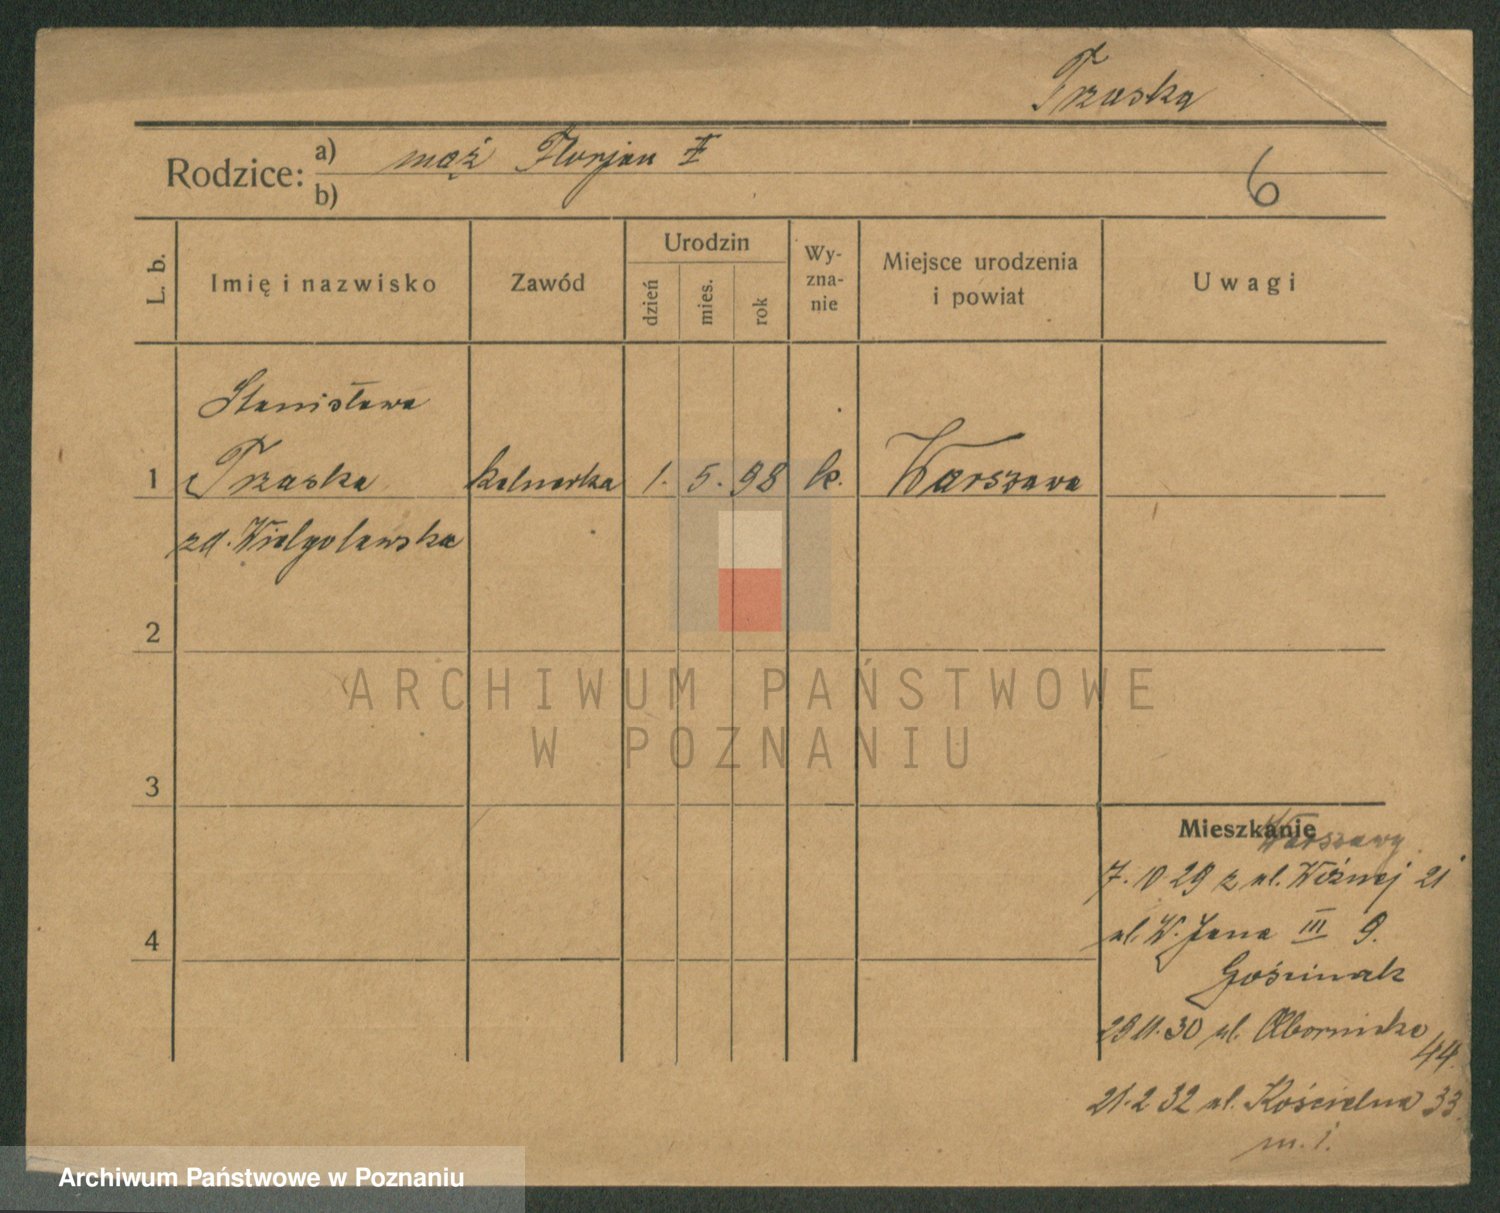 Trzaska
Rodzice:
a) mąż Florjan
b)
6
L. b.
Imię i nazwisko
Zawód
Urodzin
dzień
mies.
rok
Wy-
zna-
nie
Miejsce urodzenia
i powiat
Uwagi
Stanisława
1 Trzaska kelnerka 1. 5. 98 k. Warszawa
zd. Wielgolawska
2
3
4
ARCHIWUM PAŃSTWOWE
W POZNANIU
Mieszkanie
Warszawy
7.10 29 z ul. Woźnej 21
ul. W. Jana III 9.
Gościniak
29 11.30 ul. Obornicka
44.
21.2 32 ul. Kościelna 33.
m. 1.
Archiwum Państwowe w Poznaniu